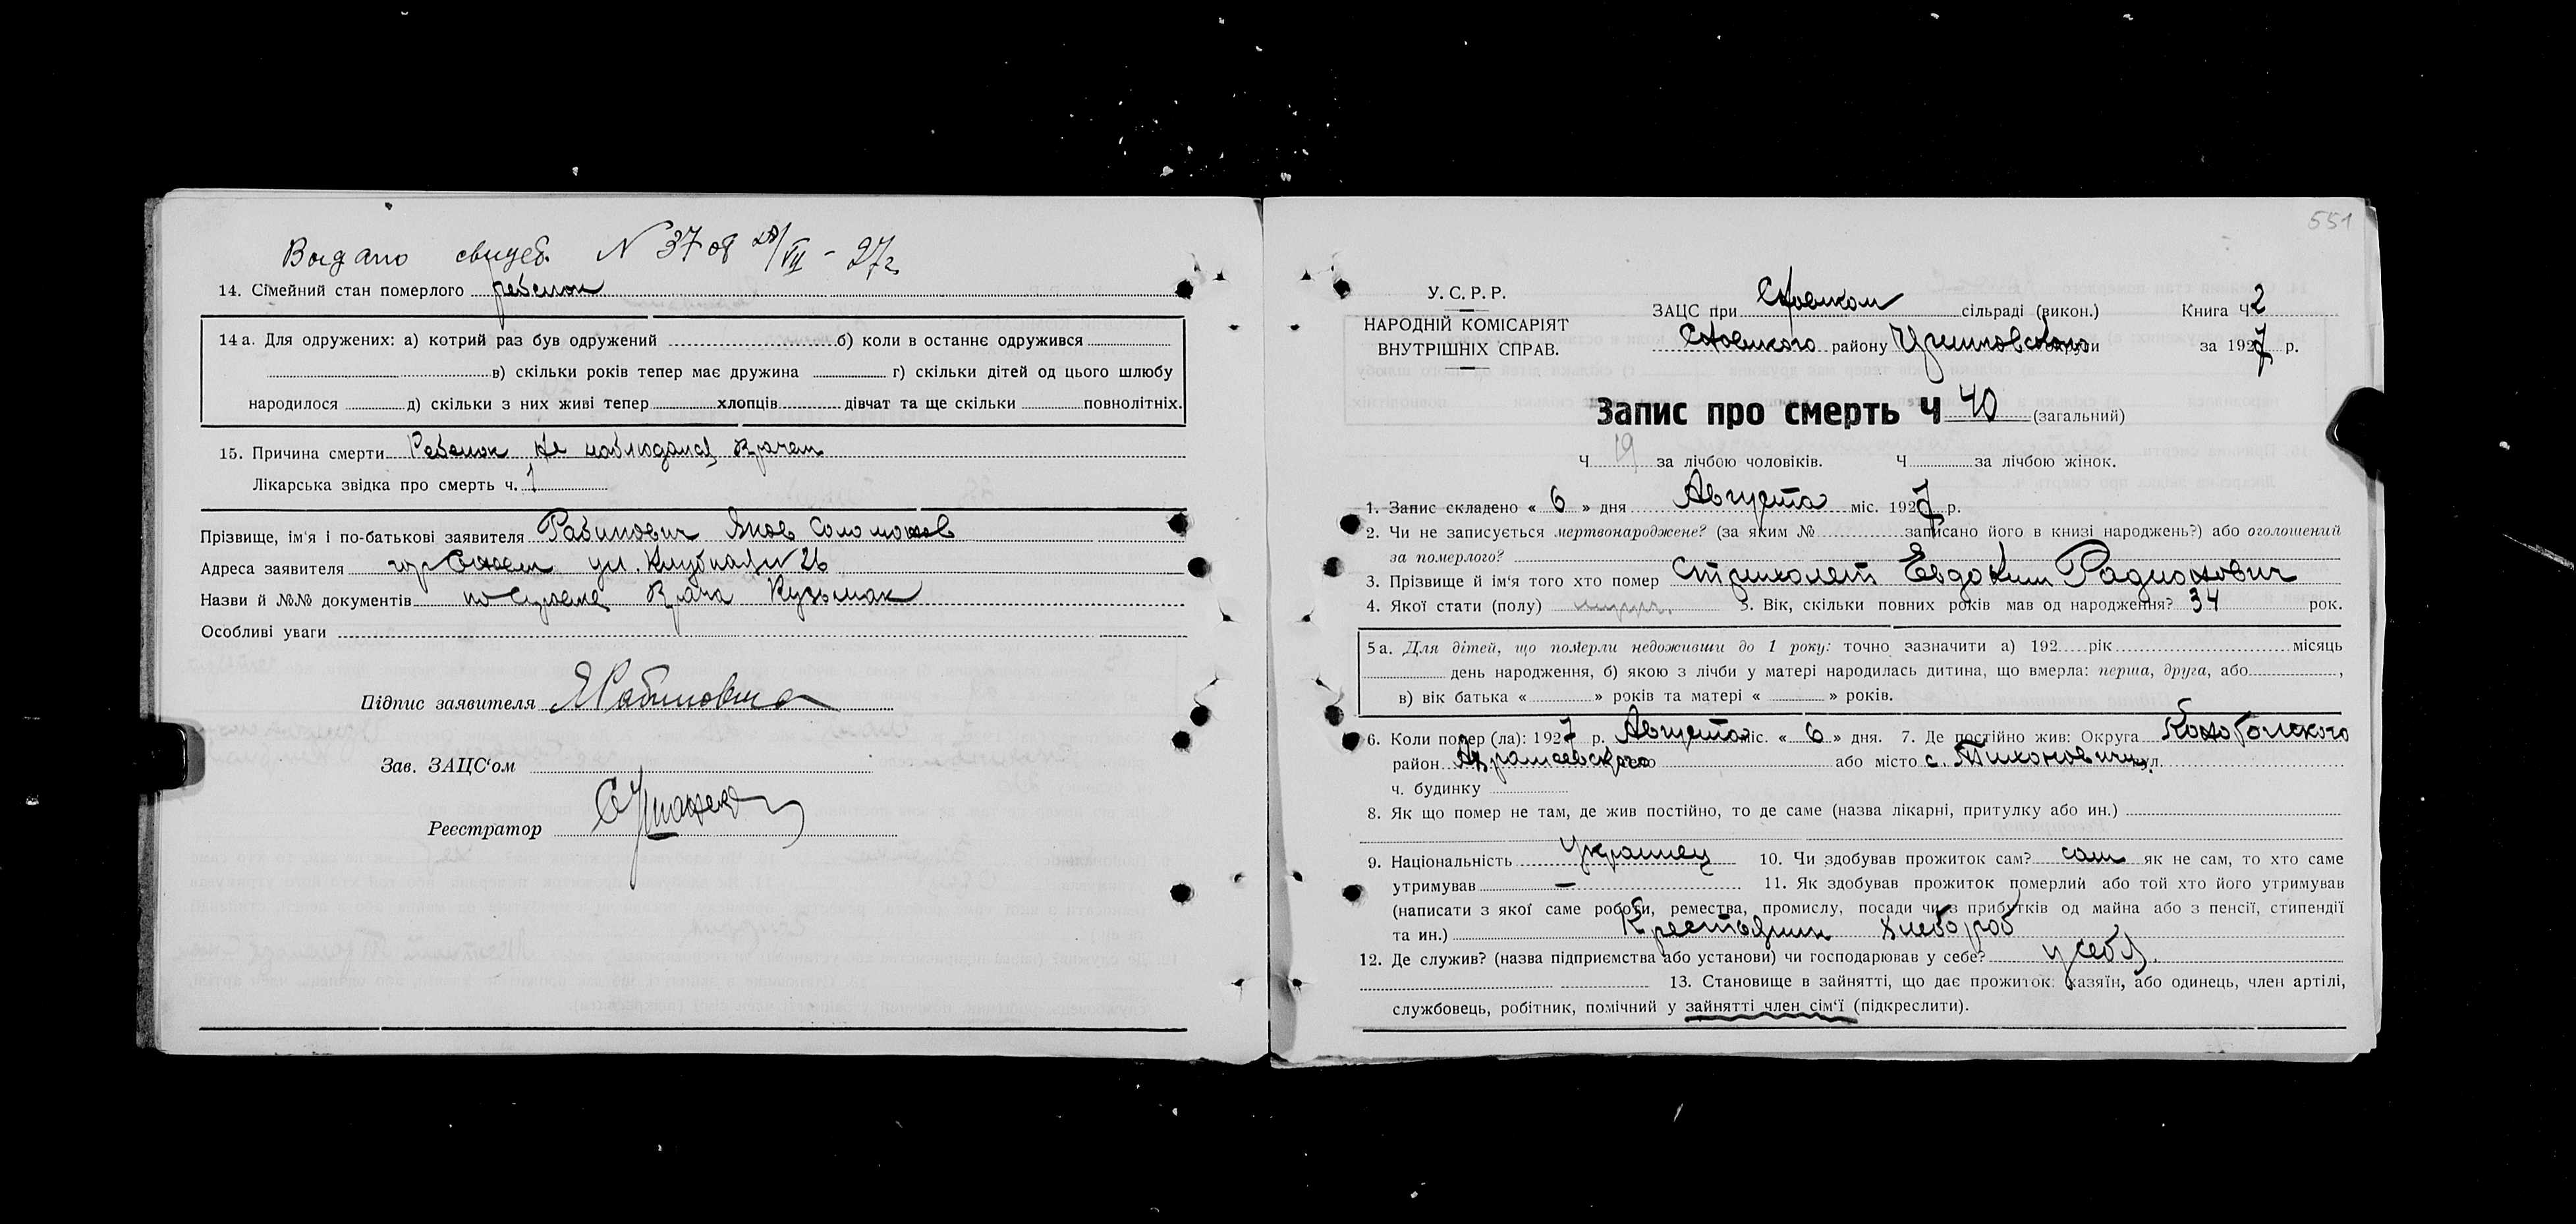 Выдано свидет. N 37 08 28/VII - 27 г.
14. Сімейний стан померлого ребенок
14 а. Для одружених: а) котрий раз був одружений б) коли в останнє одружився
в) скільки років тепер має дружина г) скільки дітей од цього шлюбу
народилося д) скільки з них живі тепер хлопців дівчат та ще скільки повнолітніх.
15. Причина смерти Ребенок не наблюдался врачем
Лікарська звідка про смерть ч. 1
Прізвище, ім'я і по-батькові заявителя Рабинович Яков Соломонов
Адреса заявителя гор Сновск ул. Клубная N 26
Назви й №№ документів Врача Кузьмак
Особливі уваги
Підпис заявителя ЯРабинович
Зав. ЗАЦС‘ом
Реєстратор
551
У. С. Р. Р.
НАРОДНІЙ КОМІСАРІЯТ
ВНУТРІШНІХ СПРАВ.
ЗАЦС при Сновском сільраді (викон.) Книга Ч 2
Сновского району округи за 1927 р.
Запис про смерть Ч 40 (загальний)
Ч 19 за лічбою чоловіків. Ч за лічбою жінок.
1. Запис складено « 6 » дня Августа міс. 1927 р.
2. Чи не записується мертвонароджене? (за яким № записано його в книзі народжень?) або оголошений
за померлого?
3. Прізвище й ім‘я того хто помер Стриколет Евдоким Радионович
4. Якої стати (полу) мужч. 5. Вік, скільки повних років мав од народження? 34 рок.
5 а. Для дітей, що померли недоживши до 1 року: точно зазначити а) 192 рік місяць
день народження, б) якою з лічби у матері народилась дитина, що вмерла: перша, друга, або ,
в) вік батька « » років та матері « » років.
6. Коли помер (ла): 1927 р. Августа міс. « 6 » дня. 7. Де постійно жив: Округа Конотопского
район або місто с. Тихоновичи вул.
ч. будинку
8. Як що помер не там, де жив постійно, то де саме (назва лікарні, притулку або ин.)
9. Національність Украинец 10. Чи здобував прожиток сам? сам як не сам, то хто саме
утримував — 11. Як здобував прожиток померлий або той хто його утримував
(написати з якої саме роботи, ремества, промислу, посади чи з прибутків од майна або з пенсії, стипендії
та ин.) Крестьянин хлебороб
12. Де служив? (назва підприємства або установи) чи господарював у себе? у себя.
13. Становище в зайнятті, що дає прожиток: хазяїн, або одинець, член артілі,
службовець, робітник, помічний у зайнятті член сім‘ї (підкреслити).